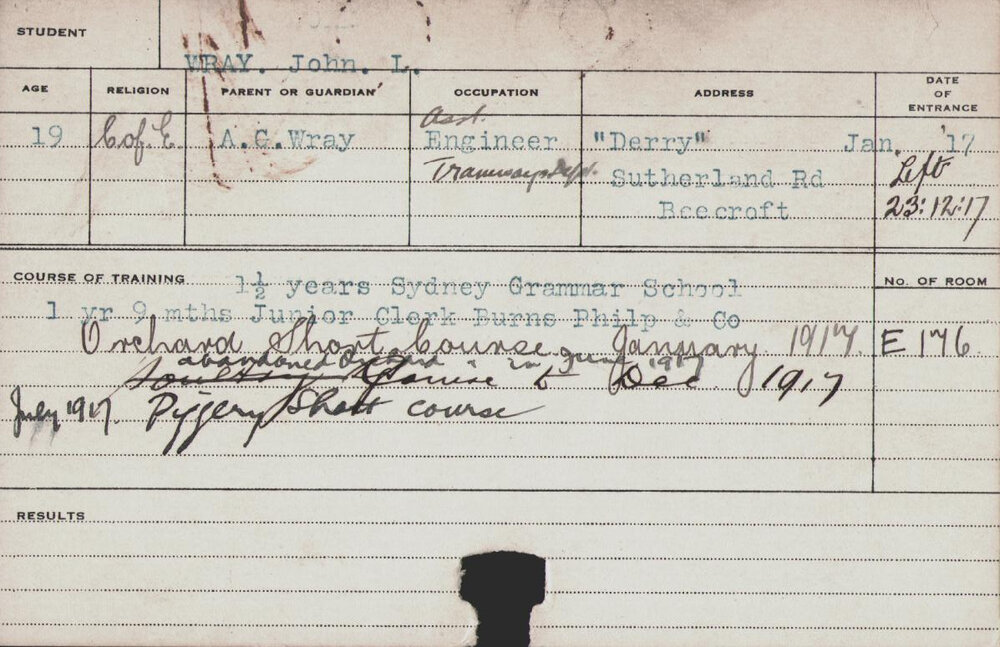 STUDENT
WRAY. John. L.
AGE RELIGION PARENT OR GUARDIAN OCCUPATION ADDRESS DATE OF ENTRANCE
Asst.
19 C of. E A.C.Wray Engineer "Derry" Jan. '17
Tramways Dept. Sutherland Rd Left
Beecroft 23:12:17
COURSE OF TRAINING 1½ years Sydney Grammar School No. OF ROOM
1 yr 9 mths Junior Clerk Burns Philp & Co
Orchard Short Course January 1917 E 176
abandoned Orchard in June 1917
Course to Dec 1917
July 1917. Piggery Short course
RESULTS